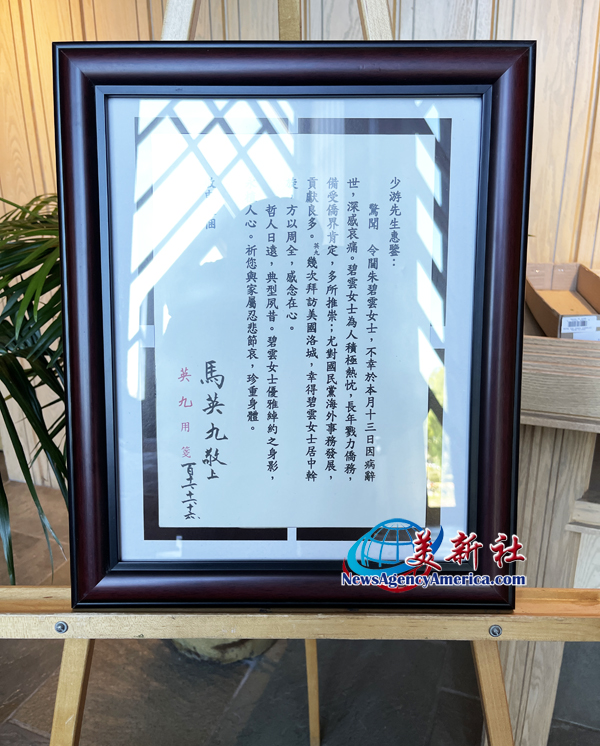 少游先生惠鑒：
驚聞　令閫朱碧雲女士，不幸於本月十三日因病辭
世，深感哀痛。碧雲女士為人積極熱忱，長年戮力僑務，
備受僑界肯定，多所推崇；尤對國民黨海外事務發展，
貢獻良多。英九幾次拜訪美國洛城，幸得碧雲女士居中幹
方以周全，感念在心。
哲人日遠，典型夙昔。碧雲女士優雅綽約之身影，
人心。祈您與家屬忍悲節哀，珍重身體。
馬英九敬上
英九用箋
美新社
NewsAgencyAmerica.com